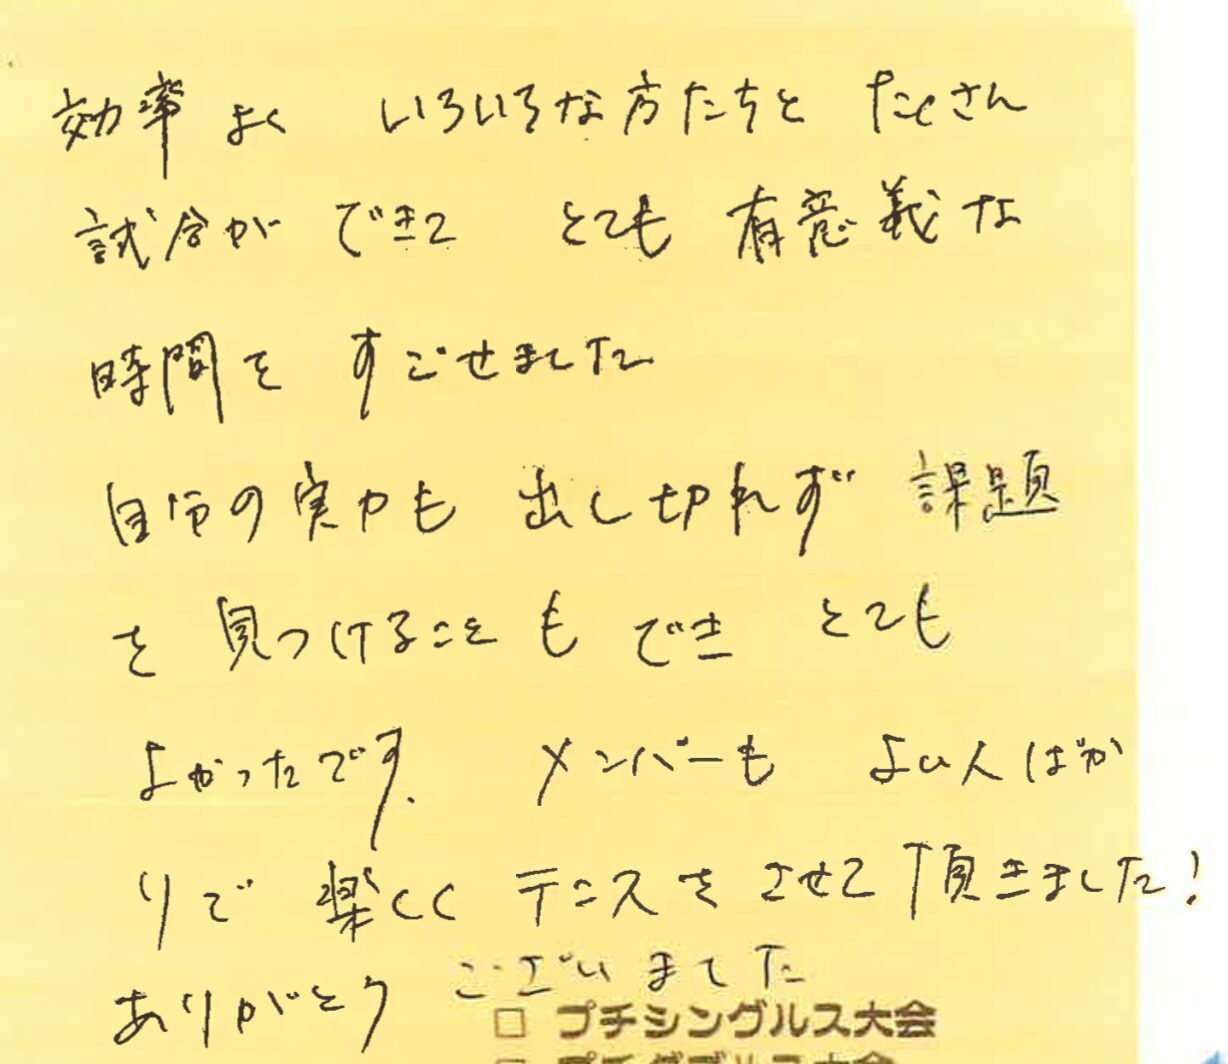 効率よく いろいろな方たちと たくさん
試合が できて とても 有意義な
時間を すごせました
自分の実力も 出し切れず 課題
を 見つけることも でき とても
よかったです. メンバーも よい人ばか
りで 楽しく テニスをさせて頂きました!
ありがとう ございました
□ プチシングルス大会
□ プチダブルス大会